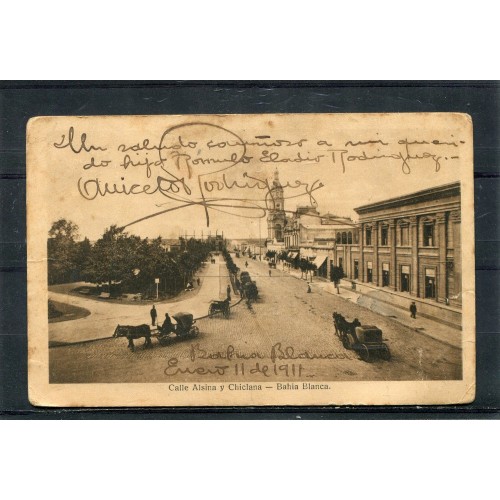 Un saludo cariñoso a mi queri-
do hijo Rómulo Eladio Rodriguez.-
Aniceto Rodriguez
Bahia Blanca
Enero 11 de 1911.
Calle Alsina y Chiclana — Bahia Blanca.